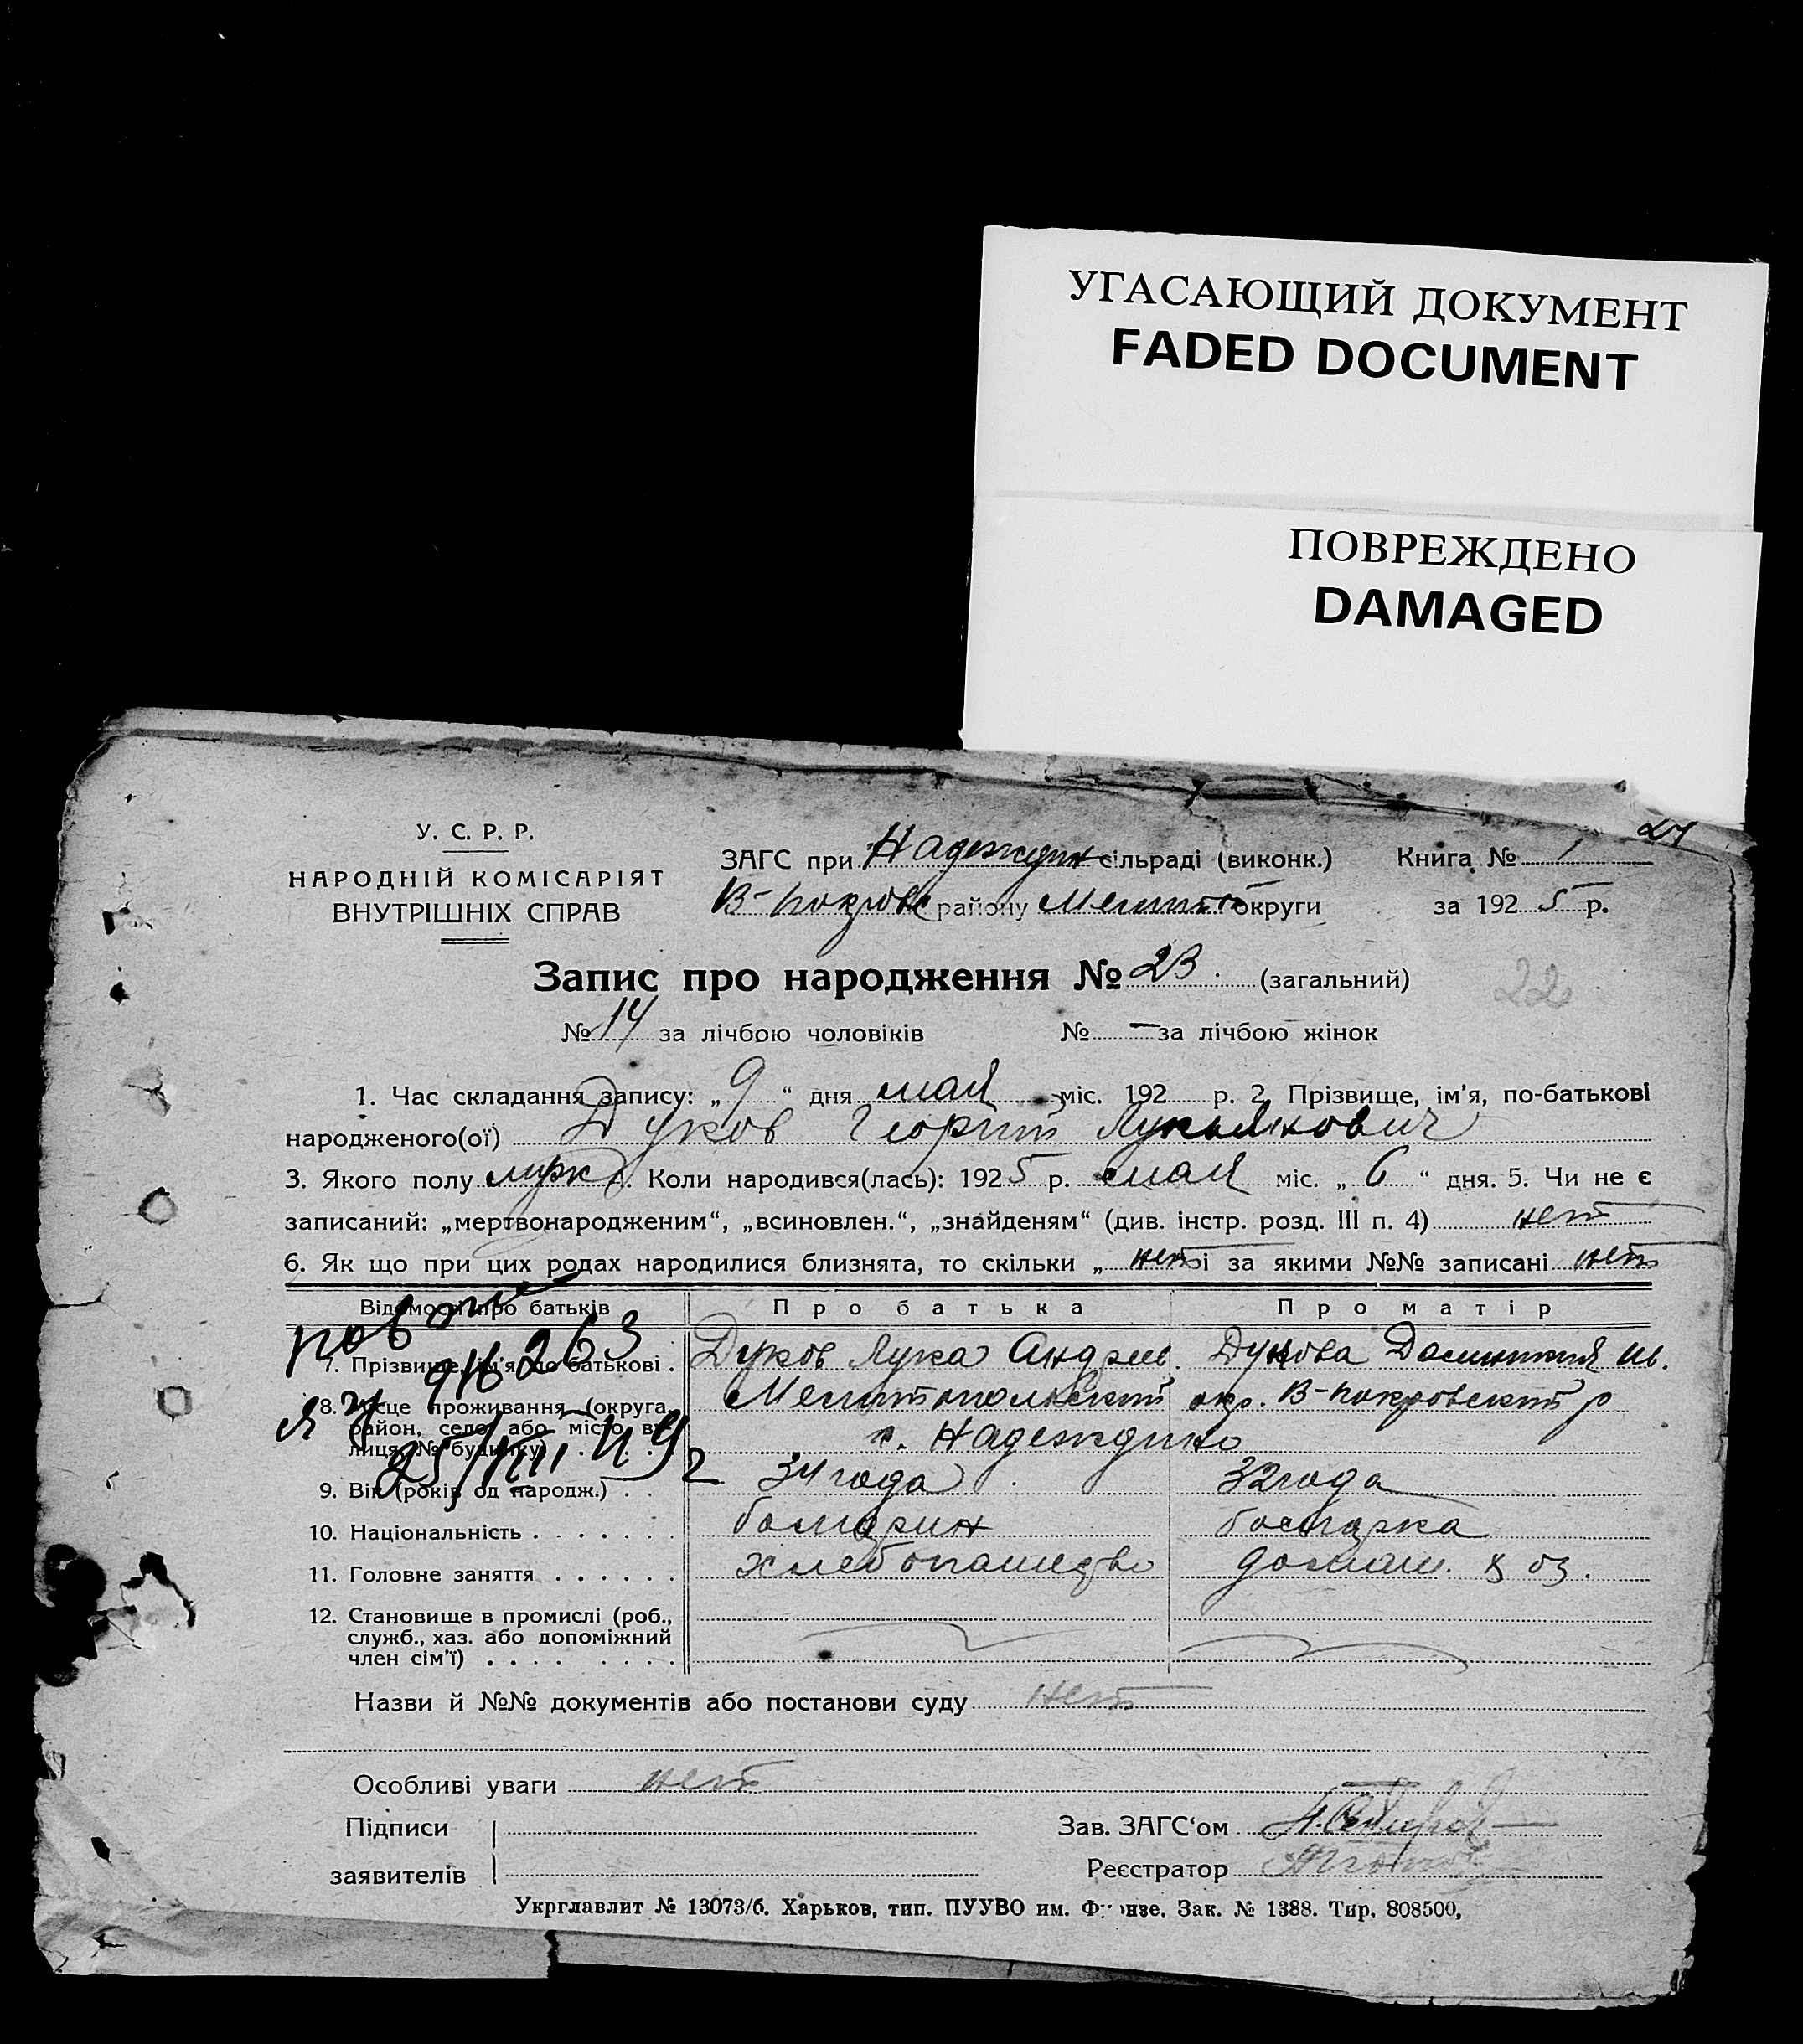 УГАСАЮЩИЙ ДОКУМЕНТ
FADED DOCUMENT
ПОВРЕЖДЕНО
DAMAGED
24
У. С. Р. Р.
НАРОДНІЙ КОМІСАРІЯТ
ВНУТРІШНІХ СПРАВ
ЗАГС при Надеждин сільраді (виконк.) Книга № 1
В-Покровс району Мелито округи за 1925 р.
Запис про народження № 23. (загальний)
22
№ 14 за лічбою чоловіків № — за лічбою жінок
1. Час складання запису: „ 9 “ дня мая міс. 192 р. 2. Прізвище, ім'я, по-батькові
народженого(ої) Дуков Георгій Лукьянович
3. Якого полу муж 4. Коли народився(лась): 1925 р. мая міс. „ 6 “ дня. 5. Чи не є
записаний: „мертвонародженим“, „всиновлен.“, „знайденям“ (див. інстр. розд. III п. 4) нет
6. Як що при цих родах народилися близнята, то скільки „ нет і за якими №№ записані нет
Відомості про батьків Про батька Про матір
7. Прізвище, ім'я по батькові . Дуков Лука Андрев. Дукова Ив.
263
8. Місце проживання (округа, район, село, або місто, вулиця, № будинку) Мелитопольский окр. В-Покровский р
с. Надеждино
25/VIII 49 г
9. Вік (років од народж.) . . 34 года 32 года
10. Національність . . . . . . . болгарин болгарка
11. Головне заняття . . . . . . хлебопашество домаш. хоз.
12. Становище в промислі (роб.,
служб., хаз. або допоміжний
член сім'ї) . . . . . . . . .
Назви й №№ документів або постанови суду нет
Особливі уваги нет
Підписи Зав. ЗАГС'ом
заявителів Реєстратор
Укрглавлит № 13073/б. Харьков, тип. ПУУВО им. Фрунзе. Зак. № 1388. Тир. 808500,